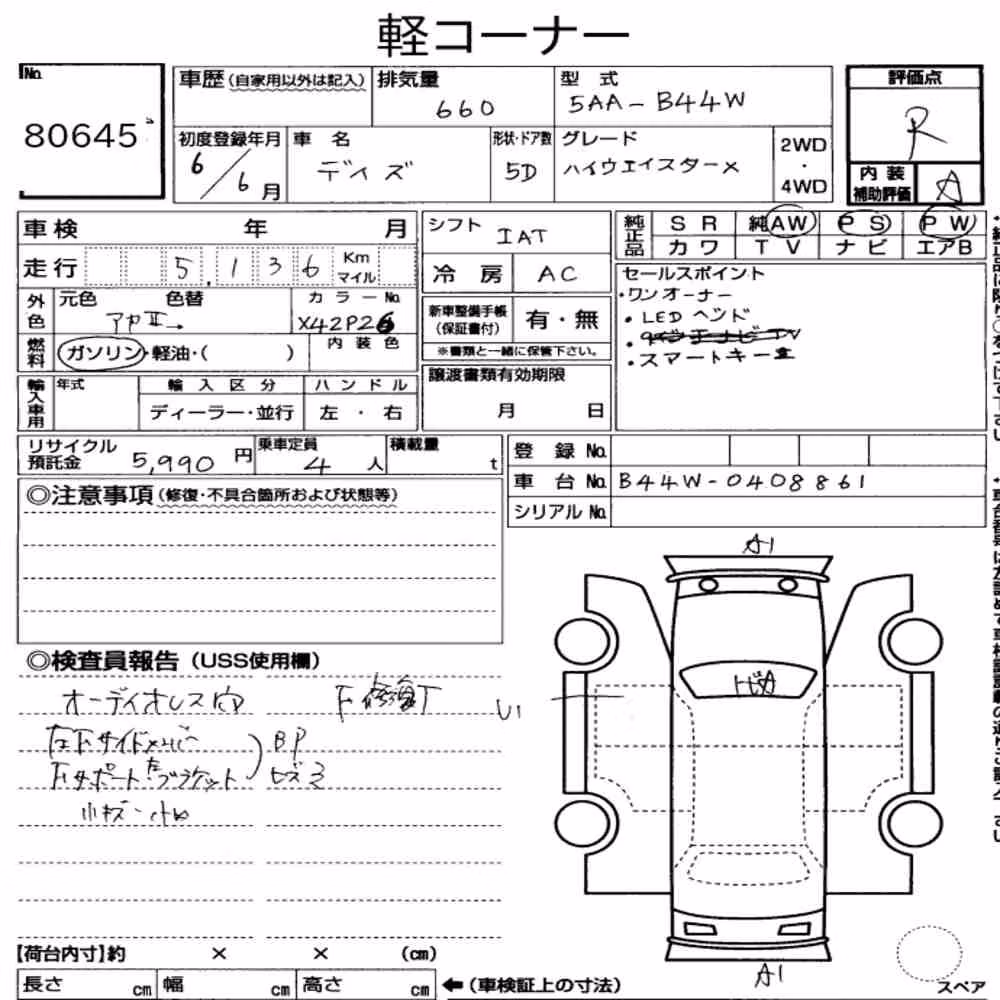 軽コーナー
No.
80645
車歴(自家用以外は記入)
排気量
660
型 式
5AA-B44W
評価点
R
初度登録年月
6/6月
車 名
デイズ
形状・ドア数
5D
グレード
ハイウェイスターX
2WD
・
4WD
内装
補助評価
A
車検 年 月
シフト
IAT
純正品
SR 純AW PS PW
カワ TV ナビ エアB
走行 5,136 Km マイル
冷房 AC
セールスポイント
・ワンオーナー
・LED ヘッド
・スマートキー
外色
元色 色替
カラーNo.
X42P26
新車整備手帳
(保証書付)
有・無
※書類と一緒に保管下さい。
燃料
ガソリン・軽油・( )
内装色
輸入車用
年式
輸入区分
ハンドル
ディーラー・並行
左・右
譲渡書類有効期限
月 日
リサイクル
預託金
5,990 円
乗車定員
4 人
積載量
t
登録No.
車台No. B44W-0408861
シリアルNo.
◎注意事項(修復・不具合箇所および状態等)
A1
◎検査員報告(USS使用欄)
オーディオレス
U1
左下サイドメンバー
BP
下サポート左ブラケット
トビA
A1
【荷台内寸】約 × × (cm)
長さ cm 幅 cm 高さ cm ←(車検証上の寸法)
スペア